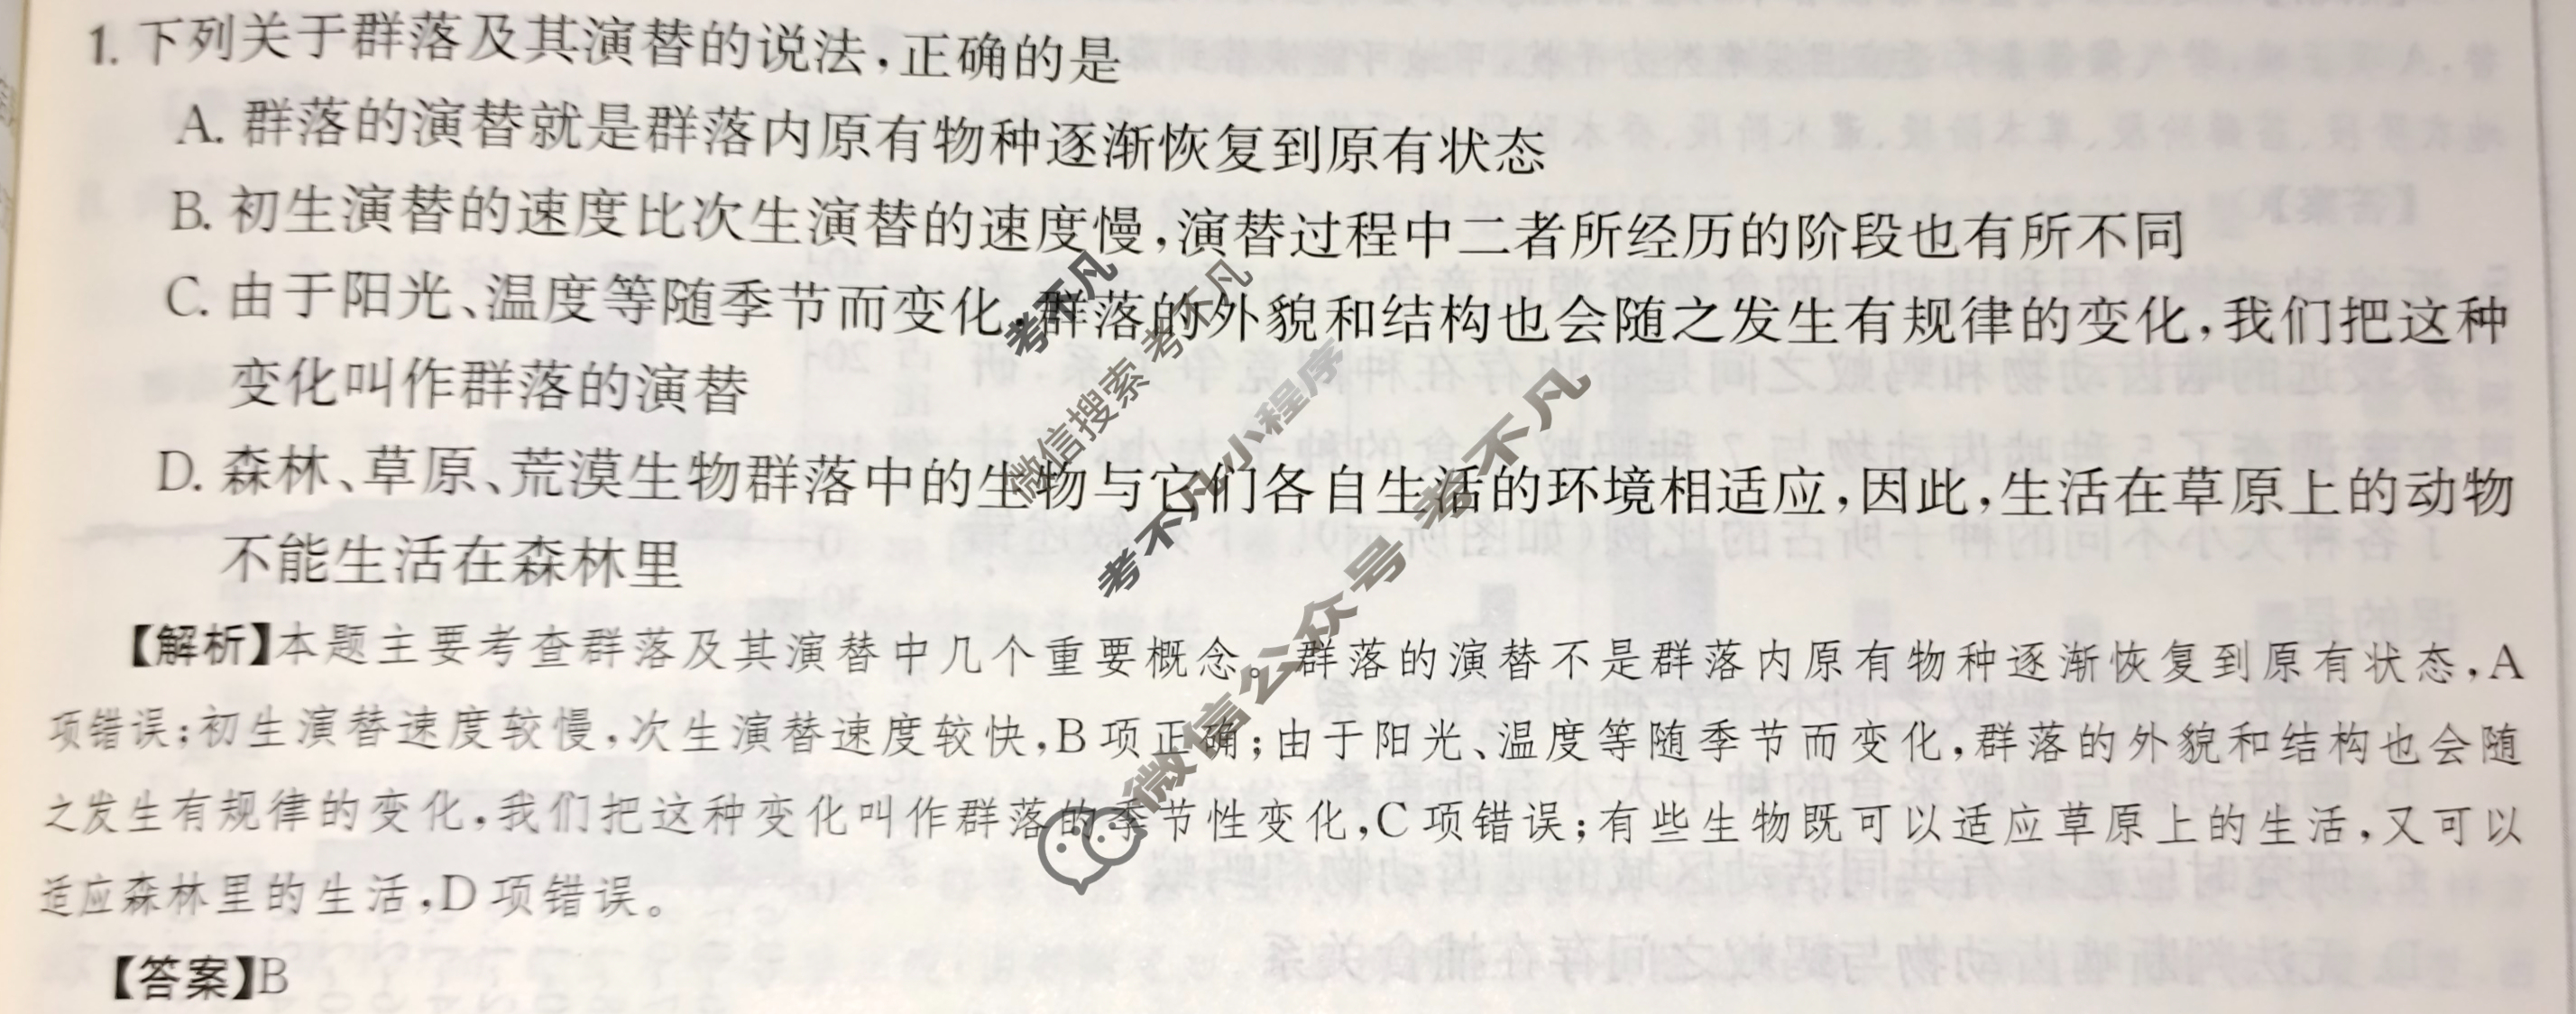 1. 下列关于群落及其演替的说法,正确的是
A. 群落的演替就是群落内原有物种逐渐恢复到原有状态
B. 初生演替的速度比次生演替的速度慢,演替过程中二者所经历的阶段也有所不同
C. 由于阳光、温度等随季节而变化,群落的外貌和结构也会随之发生有规律的变化,我们把这种
变化叫作群落的演替
D. 森林、草原、荒漠生物群落中的生物与它们各自生活的环境相适应,因此,生活在草原上的动物
不能生活在森林里
【解析】本题主要考查群落及其演替中几个重要概念。群落的演替不是群落内原有物种逐渐恢复到原有状态,A
项错误;初生演替速度较慢,次生演替速度较快,B项正确;由于阳光、温度等随季节而变化,群落的外貌和结构也会随
之发生有规律的变化,我们把这种变化叫作群落的季节性变化,C项错误;有些生物既可以适应草原上的生活,又可以
适应森林里的生活,D项错误。
【答案】B
考不凡
微信搜索 考不凡
考不凡小程序
微信公众号 考不凡